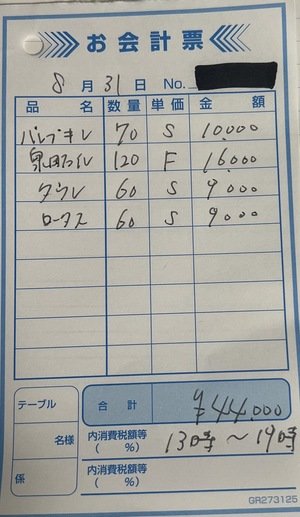 お会計票
8月31日 No.
品名 数量 単価 金額
70 S 10000
120 F 16000
タウレ 60 S 9000
ロータス 60 S 9000
テーブル 合計 ¥44,000
名様 内消費税額等 ( %) 13時～19時
係 内消費税額等 ( %)
GR273125